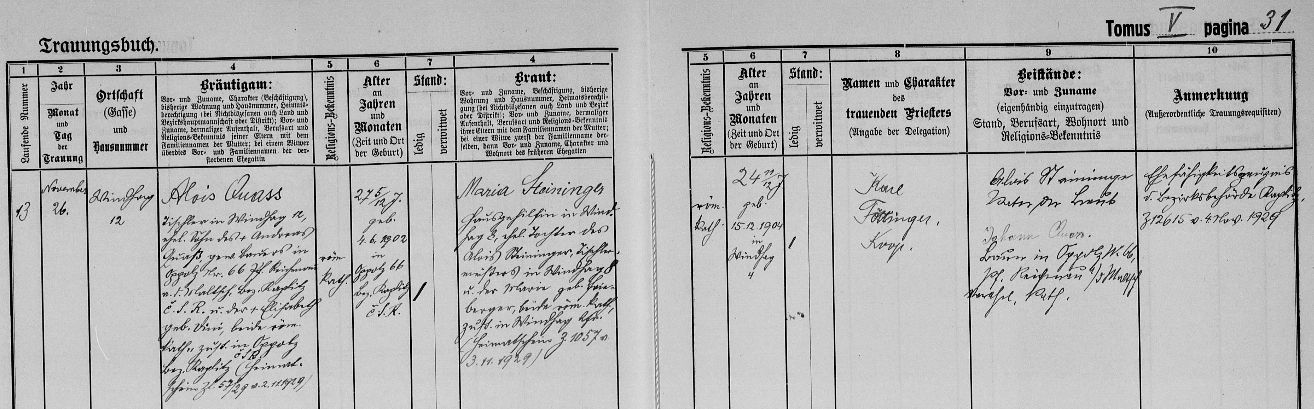 Trauungsbuch.
Tomus V pagina 31
1
Laufende Nummer
2
Jahr
Monat
und
Tag
der
Trauung
3
Ortschaft
(Gasse)
und
Hausnummer
4
Bräutigam:
Vor- und Zuname, Charakter (Beschäftigung),
bisherige Wohnung und Hausnummer, Heimats-
berechtigung (bei Nichtbözigen auch Land und
Bezirkshauptmannschaft oder Distrikt); Vor- und
Zuname, dermaliger Aufenthalt, Berufsart und
Religions-Bekenntnis seiner Eltern mit dem
Familiennamen der Mutter; bei einem Witwer
überdies Vor- und Familiennamen der ver-
storbenen Ehegattin
5
Religions-Bekenntnis
6
Alter
an
Jahren
und
Monaten
(Zeit und Ort
der Geburt)
7
Stand:
ledig
verwitwet
4
Braut:
Vor- und Zuname, Beschäftigung, bisherige
Wohnung und Hausnummer, Heimatsberech-
tigung (bei auch Land und Bezirk
oder Distrikt); Vor- und Zuname, dermaliger
Aufenthalt, Berufsart und Religions-Bekenntnis
ihrer Eltern mit dem Familiennamen der Mutter;
bei einer Witwe zuerst der Familienname der-
selben, dann Vor- und Zuname, Charakter und
Wohnort des früheren Ehegatten
5
Religions-Bekenntnis
6
Alter
an
Jahren
und
Monaten
(Zeit und Ort
der Geburt)
7
Stand:
ledig
verwitwet
8
Namen und Charakter
des
trauenden Priesters
(Angabe der Delegation)
9
Beistände:
Vor- und Zuname
(eigenhändig einzutragen)
Stand, Berufsart, Wohnort und
Religions-Bekenntnis
10
Anmerkung
(Außerordentliche Trauungsrequisiten)
13
November
26.
Windhag
12
Alois Quass
Tischler in Windhag 12,
ehel. Sohn des + Andreas
Quass, gew. Bauers in
Oppolz Nr. 66 Pf. Reichenau
a. d. Maltsch, Bez. Kaplitz
Č.S.R. u. der + Elisabeth
geb. beide röm.
kath. zust. in Oppolz
Bez. Kaplitz Č.S.R. (Heimat-
schein Zl. 57/29 v. 2. 11. 1929)
röm.
kath.
27 5/12 J.
geb.
4. 6. 1902
in
Oppolz 66
Bez. Kaplitz
Č.S.R.
1
Maria Steininger
Hausgehilfin in Wind-
hag 8, ehel. Tochter des
Alois Steininger, Tischler-
meisters in Windhag 8
u. der Marie geb.
berger, beide röm. kath.,
zust. in Windhag
(Heimatschein Z. 1057 v.
3. 11. 1929)
röm.
kath.
24 11/12 J
geb.
15. 12. 1904
in
Windhag
1
Karl
Föttinger,
Koop.
Alois Steininger
Vater der Braut
Johann Quass.
Bauer in Oppolz Nr. 66,
Pf. Reichenau a/d Maltsch
kath.
Ehefähigkeitszeugnis
d. Bezirksbehörde Kaplitz,
Z 12615 v. 4. Nov. 1929